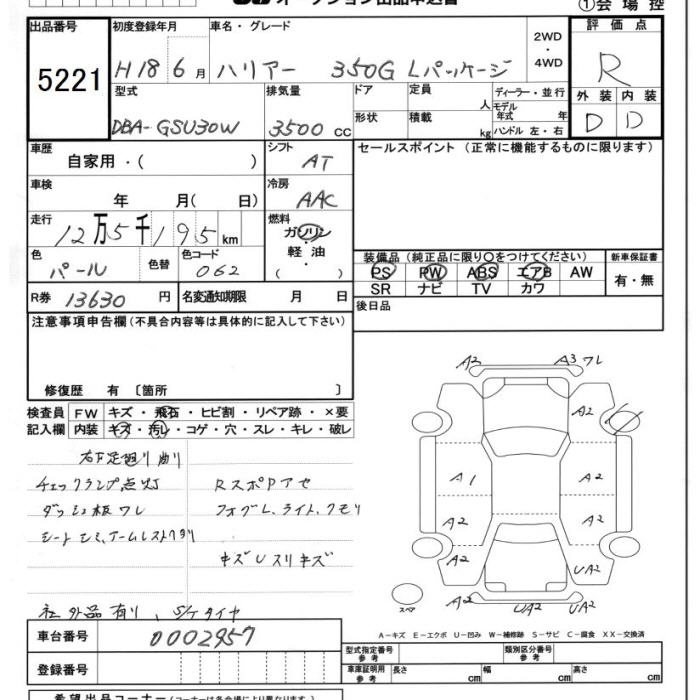 ①会場控
出品番号
5221
初度登録年月
H18 6月
車名・グレード
ハリアー 350G Lパッケージ
2WD
・
4WD
評価点
R
外装 内装
D D
型式
DBA-GSU30W
排気量
3500 cc
ドア
形状
定員
人
積載
kg
ディーラー・並行
モデル年式 年
ハンドル 左・右
車歴
自家用・( )
シフト
AT
車検
年 月( 日)
冷房
AAC
走行
12万5千195km
燃料
ガソリン
・
軽油
( )
色
パール
色替
色コード
062
R券 13630円
名変通知期限 月 日
セールスポイント (正常に機能するものに限ります)
装備品 (純正品に限り〇をつけてください)
PS PW ABS エアB AW
SR ナビ TV カワ
新車保証書
有・無
後日品
注意事項申告欄 (不具合内容等は具体的に記入して下さい)
修復歴 有 〔箇所 〕
検査員 FW キズ・飛石・ヒビ割・リペア跡・×要
記入欄 内装 キズ・汚レ・コゲ・穴・スレ・キレ・破レ
チェックランプ点灯
ダッシュ板ワレ
キズUスリキズ
社外品有り、S/Kタイヤ
A2 A3ワレ
A2
A1 A2
A2 A2
A2 UA2
A2 UA2 UA2
スペア
A-キズ E-エクボ U-凹み W-補修跡 S-サビ C-腐食 XX-交換済
車台番号 0002957
登録番号
型式指定番号 参考
類別区分番号 参考
車庫証明用 参考 長さ cm 幅 cm 高さ cm
希望出品コーナー (コーナーは各会場により異なります)